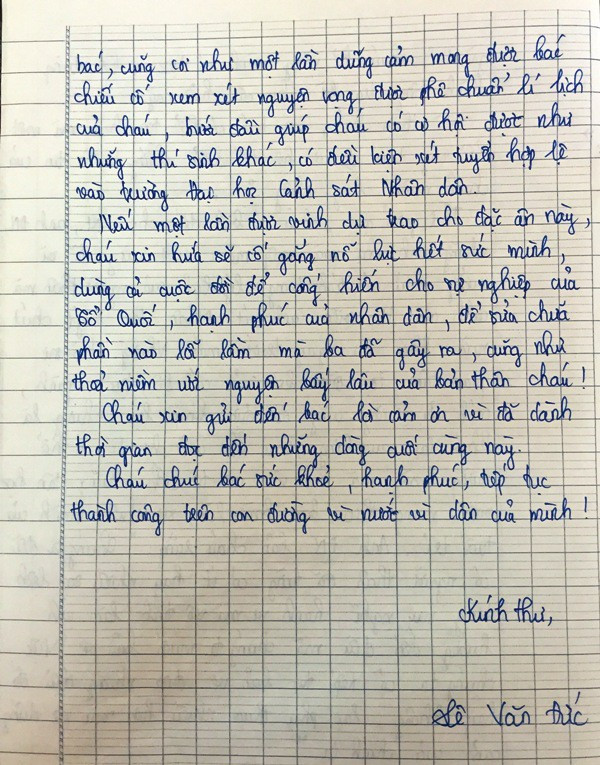 bác, cũng coi như một lần dũng cảm mong được bác
chiếu cố xem xét nguyện vọng, được phê chuẩn lí lịch
của cháu, bước đầu giúp cháu có cơ hội được như
những thí sinh khác, có điều kiện xét tuyển hợp lệ
vào trường Đại học Cảnh sát Nhân dân.
Nếu một lần được vinh dự trao cho đặc ân này,
cháu xin hứa sẽ cố gắng nỗ lực hết sức mình,
dùng cả cuộc đời để cống hiến cho sự nghiệp của
Tổ Quốc, hạnh phúc của nhân dân, để sửa chữa
phần nào lỗi lầm mà ba đã gây ra, cũng như
thoả niềm ước nguyện bấy lâu của bản thân cháu!
Cháu xin gửi đến bác lời cảm ơn vì đã dành
thời gian đọc đến những dòng cuối cùng này.
Cháu chúc bác sức khoẻ, hạnh phúc, tiếp tục
thành công trên con đường vì nước vì dân của mình!
Kính thư,
Lê Văn Đức